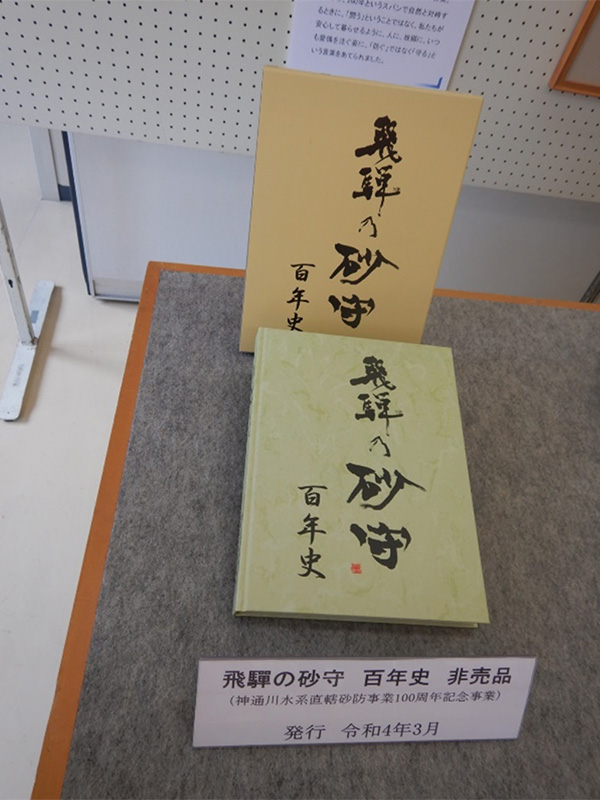 もときに、「闘う」ということではなく、私たちが
安心して暮らせるように、人に、地域に、いつ
も愛情を注ぐ姿に、「防ぐ」ではなく「守る」と
いう言葉をあてられました。
飛騨の砂守
百年史
飛騨の砂守
百年史
飛騨の砂守 百年史 非売品
(神通川水系直轄砂防事業100周年記念事業)
発行 令和4年3月